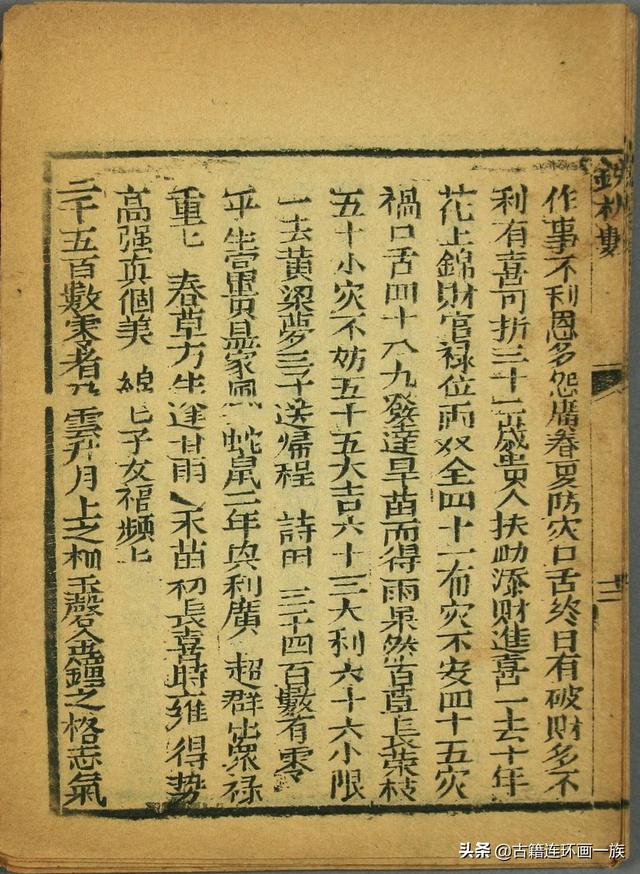 鉄板數
十二
作事不利恩多怨廣春夏防灾口舌終日有破財多不
利有喜可折三十一歲貴人扶助添財進喜一去十年
花上錦財官禄位兩双全四十一布灾不安四十五灾
禍口舌四十八九發達旱苗而得雨果然古草長荣枝
五十小灾不妨五十五大吉六十三大利六十六小限
一去黄梁夢三子送帰程 詩曰 三千四百數有零
平生富貴昌家風 蛇鼠二年與利廣 超群出衆禄
重七 春草方生逢甘雨 禾苗初長喜時雍 得势
高强真個美 綿七子女福頻上
三千五百數零者 雲升月上之 玉磬金鐘之格志氣
头条 @古籍连环画一族